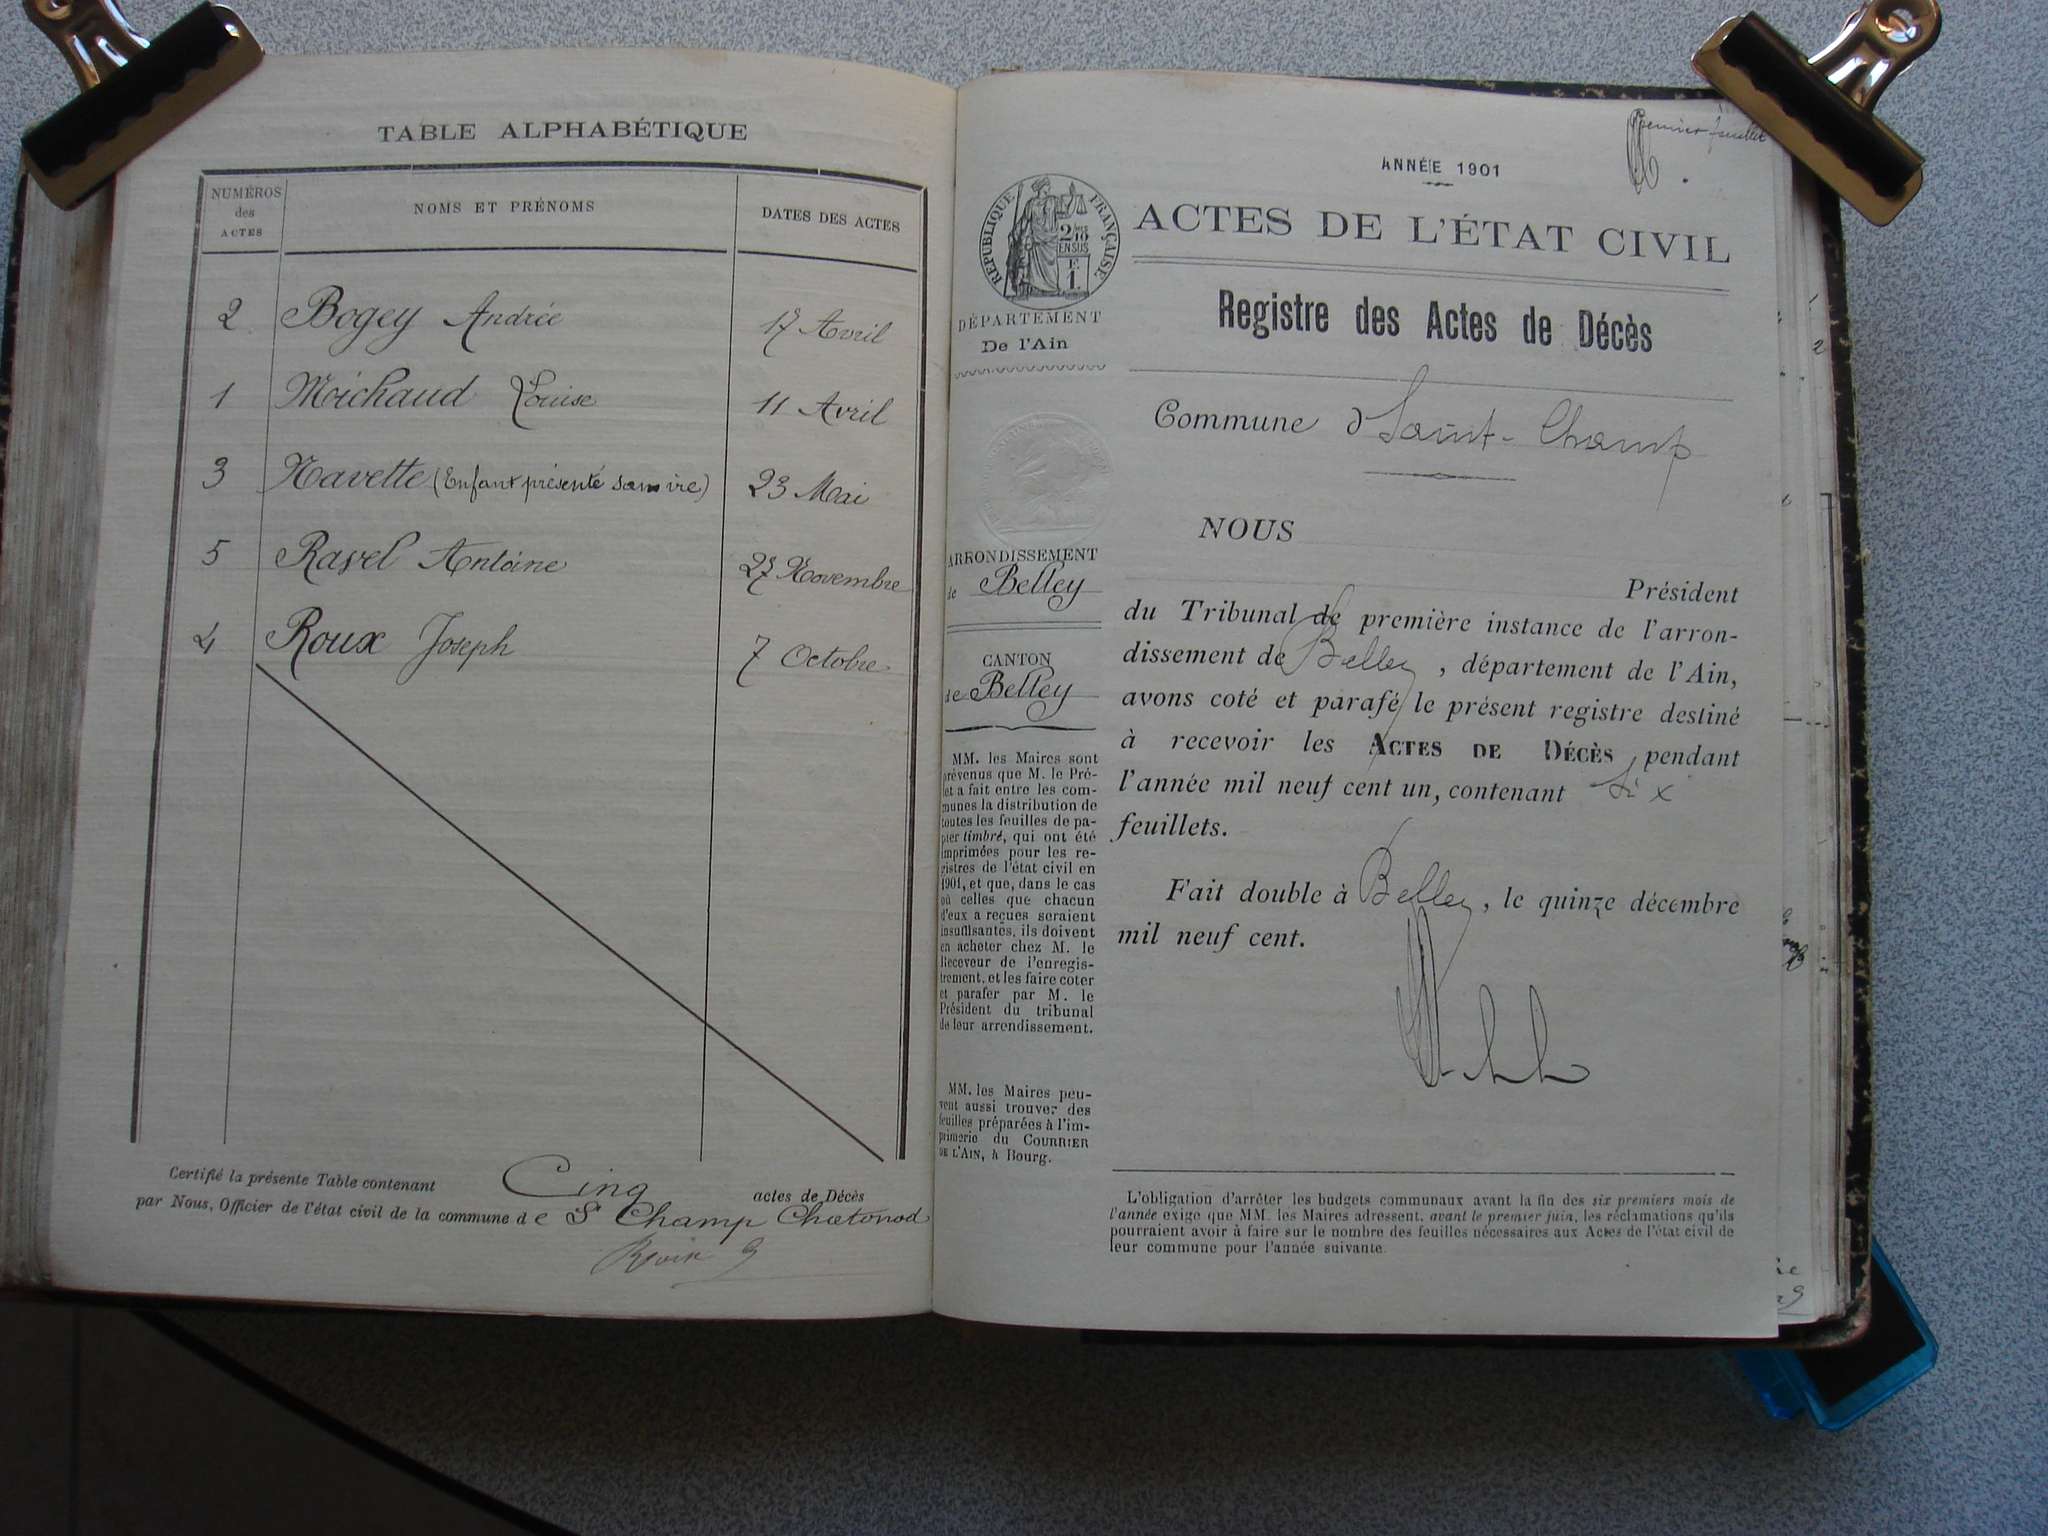 TABLE ALPHABÉTIQUE
NUMÉROS
des
ACTES
NOMS ET PRÉNOMS
DATES DES ACTES
2 Bogey Andrée 17 Avril
1 Michaud Louise 11 Avril
3 Navette (Enfant présenté sans vie) 23 Mai
5 Ravel Antoine 27 Novembre
4 Roux Joseph 7 Octobre
Certifié la présente Table contenant Cinq actes de Décès
par Nous, Officier de l'état civil de la commune de St Champ Chatonod
Premier feuillet
ANNÉE 1901
RÉPUBLIQUE FRANÇAISE
2/10
EN SUS
E
1
ACTES DE L'ÉTAT CIVIL
Registre des Actes de Décès
DÉPARTEMENT
De l'Ain
Commune d Saint-Champ
ARRONDISSEMENT
de Belley
CANTON
de Belley
MM. les Maires sont
prévenus que M. le Pré-
fet a fait entre les com-
munes la distribution de
toutes les feuilles de pa-
pier timbré, qui ont été
imprimées pour les re-
gistres de l'état civil en
1901, et que, dans le cas
où celles que chacun
d'eux a reçues seraient
insuffisantes, ils doivent
en acheter chez M. le
Receveur de l'enregis-
trement, et les faire coter
et parafer par M. le
Président du tribunal
de leur arrondissement.
MM. les Maires peu-
vent aussi trouver des
feuilles préparées à l'im-
primerie du COURRIER
DE L'AIN, à Bourg.
NOUS
Président
du Tribunal de première instance de l'arron-
dissement de Belley, département de l'Ain,
avons coté et parafé le présent registre destiné
à recevoir les ACTES DE DÉCÈS pendant
l'année mil neuf cent un, contenant Six
feuillets.
Fait double à Belley, le quinze décembre
mil neuf cent.
L'obligation d'arrêter les budgets communaux avant la fin des six premiers mois de
l'année exige que MM. les Maires adressent, avant le premier juin, les réclamations qu'ils
pourraient avoir à faire sur le nombre des feuilles nécessaires aux Actes de l'état civil de
leur commune pour l'année suivante.